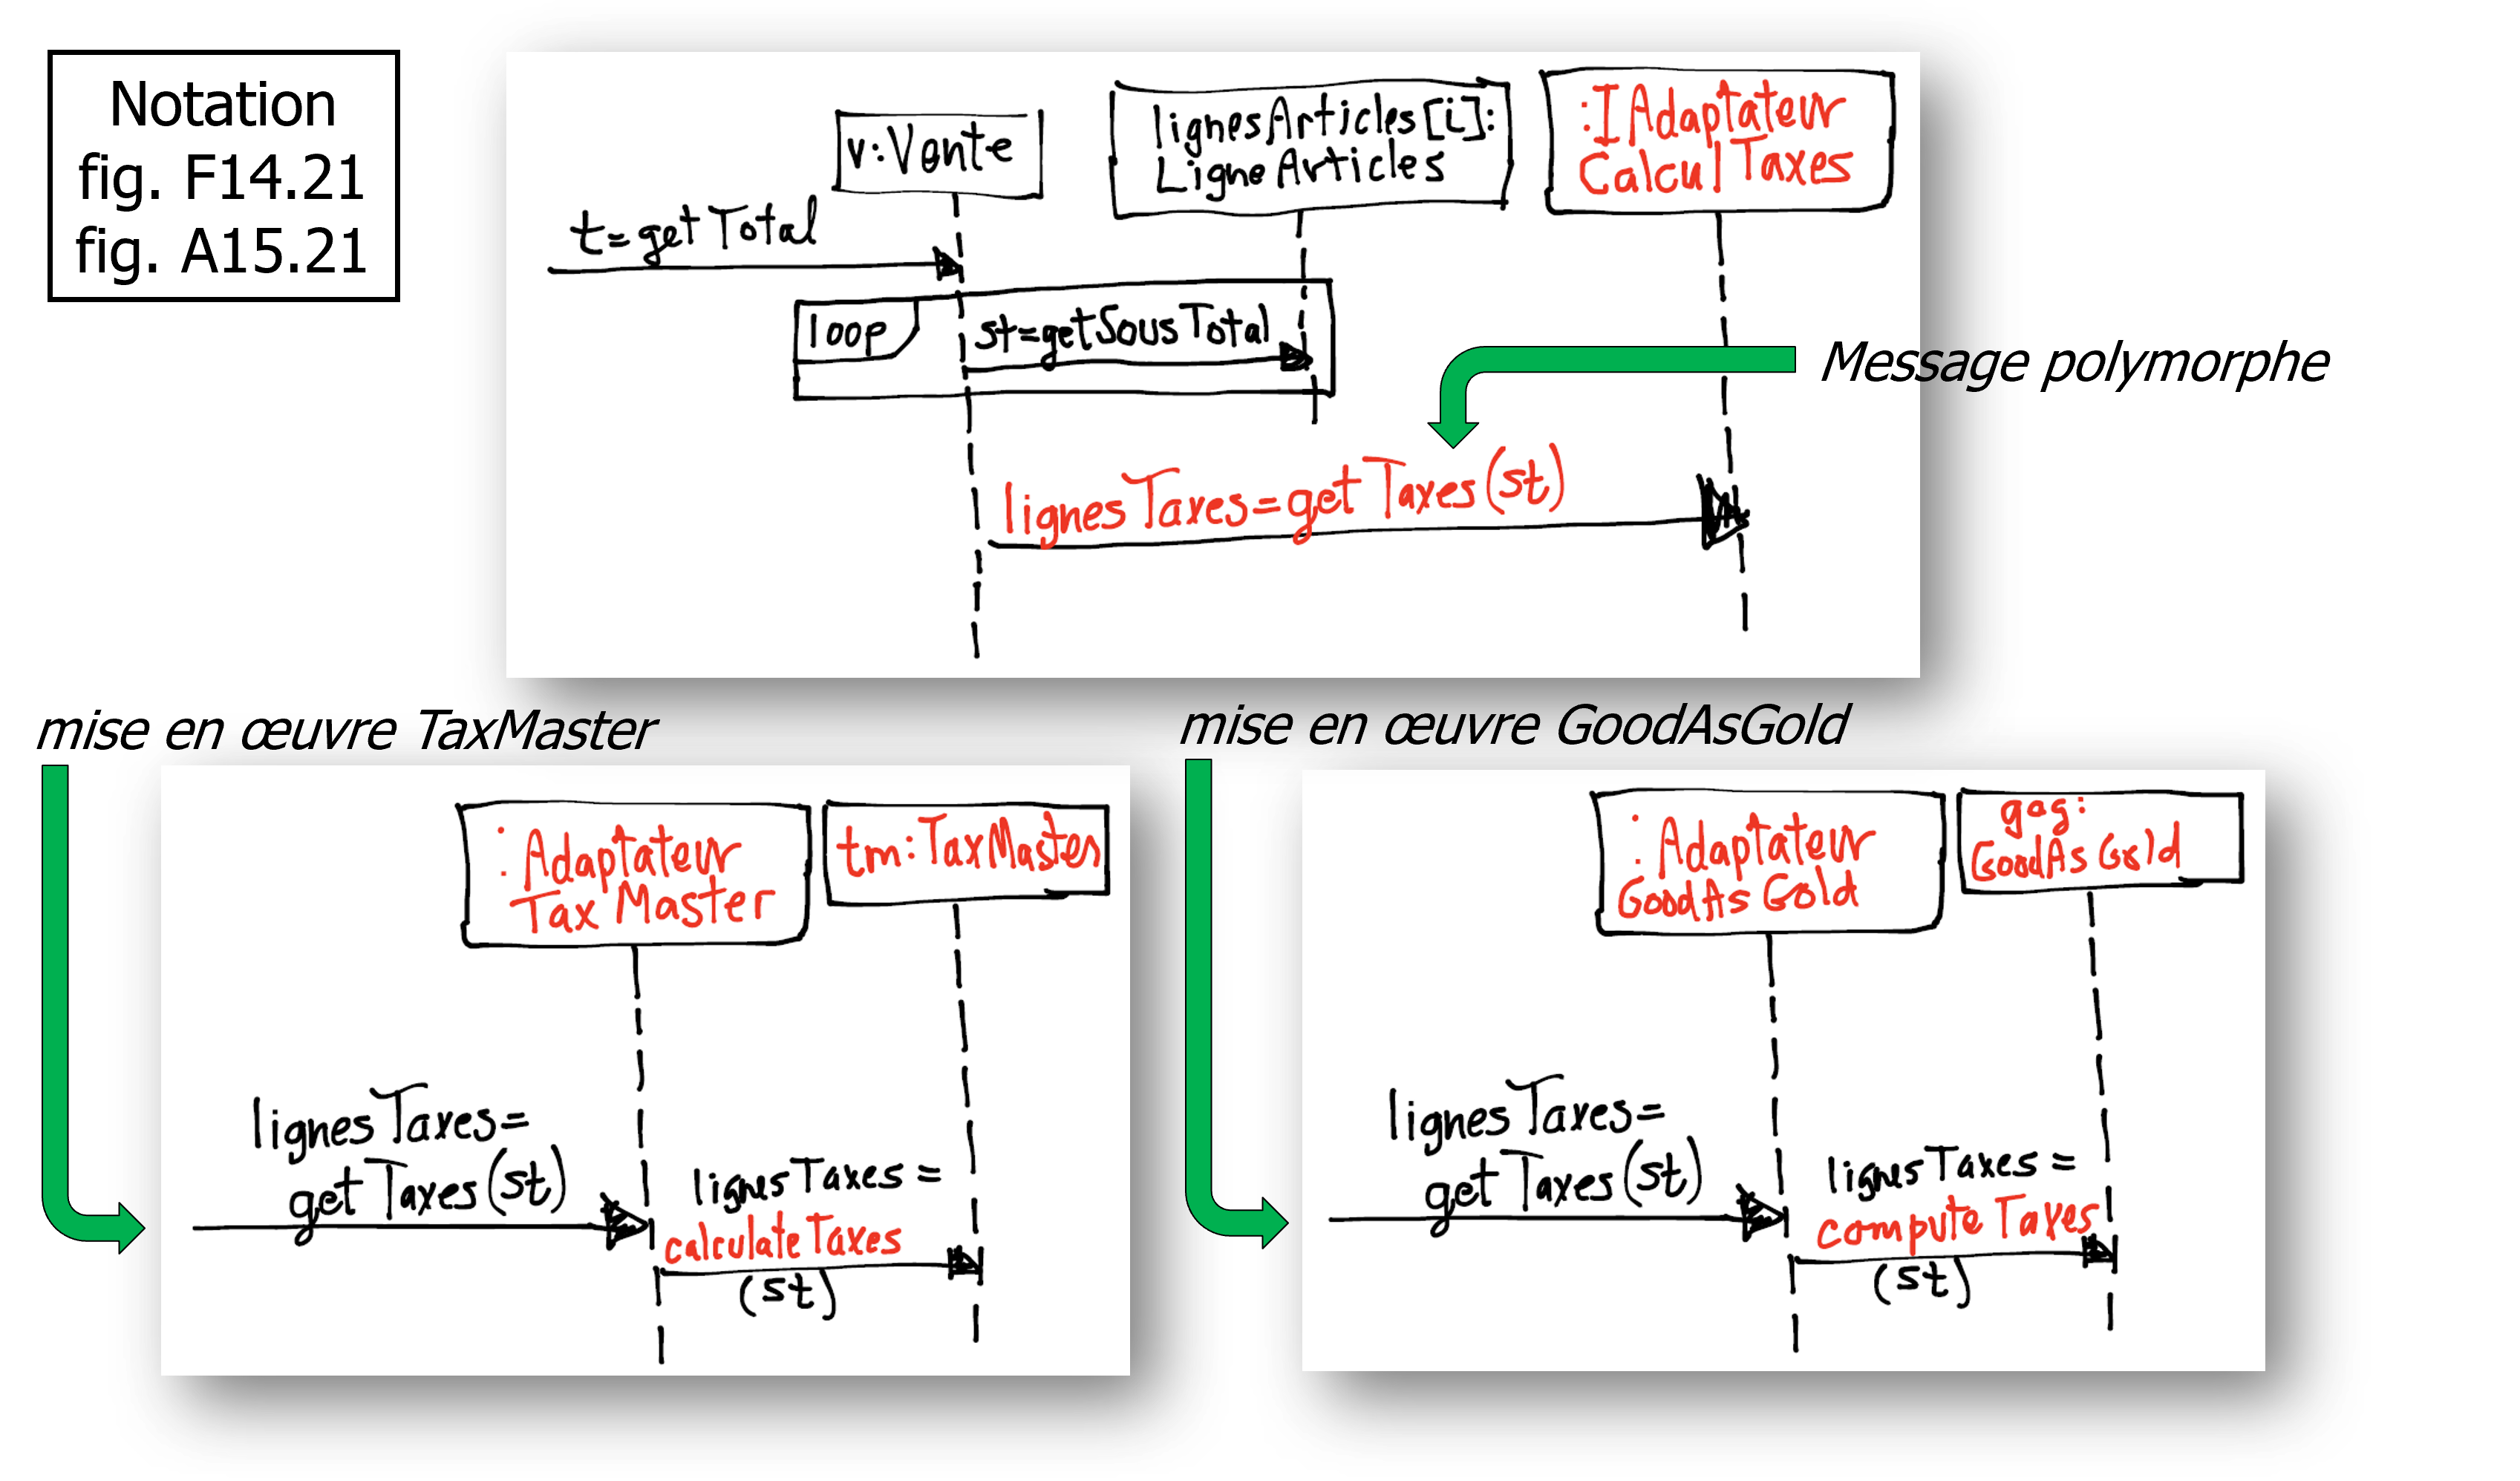 Notation
fig. F14.21
fig. A15.21
v:Vente
lignesArticles[i]:
LigneArticles
:IAdaptateur
CalculTaxes
t=getTotal
loop
st=getSousTotal
Message polymorphe
lignesTaxes=getTaxes(st)
mise en œuvre TaxMaster
:Adaptateur
TaxMaster
tm:TaxMaster
lignesTaxes=
getTaxes(st)
lignesTaxes=
calculateTaxes
(st)
mise en œuvre GoodAsGold
:Adaptateur
GoodAsGold
gag:
GoodAsGold
lignesTaxes=
getTaxes(st)
lignesTaxes=
computeTaxes
(st)